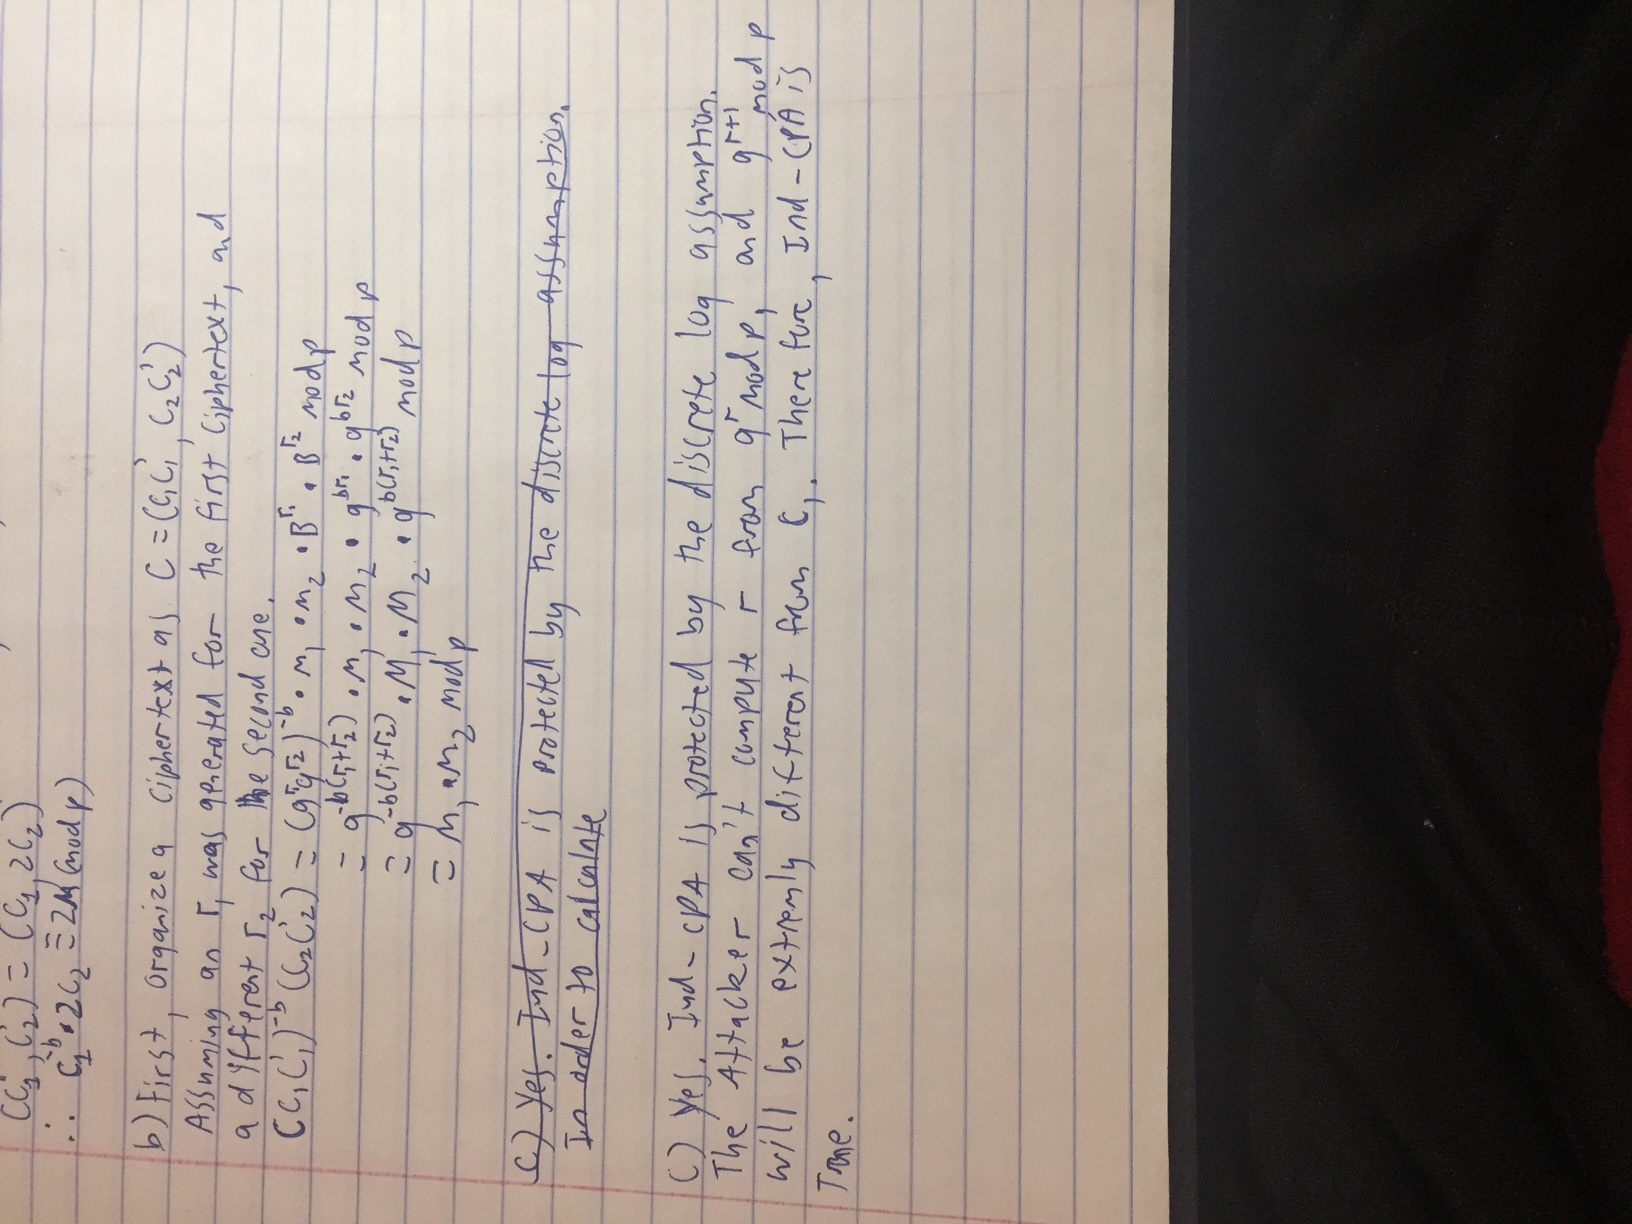 (C₁', C₂') = (C₁, 2C₂)
∴ C₁⁻ᵇ · 2C₂ ≡ 2M (mod p)
b) First, organize a ciphertext as C = (C₁C₁', C₂C₂')
Assuming an r₁ was generated for the first ciphertext, and
a different r₂ for the second one.
(C₁C₁')⁻ᵇ (C₂C₂') = (g^r₁ g^r₂)^-b · m₁ · m₂ · B^r₁ · B^r₂ mod p
= g^-b(r₁+r₂) · M₁ · M₂ · g^br₁ · g^br₂ mod p
= g^-b(r₁+r₂) · M₁ · M₂ · g^b(r₁+r₂) mod p
= M₁ · M₂ mod p
c) Yes. Ind-CPA is protected by the discrete log assumption.
In order to calculate
C) Yes. Ind-CPA is protected by the discrete log assumption.
The Attacker can't compute r from g^r mod p, and g^r+1 mod p
will be extremly different from C₁. Therefore, Ind-CPA is
True.